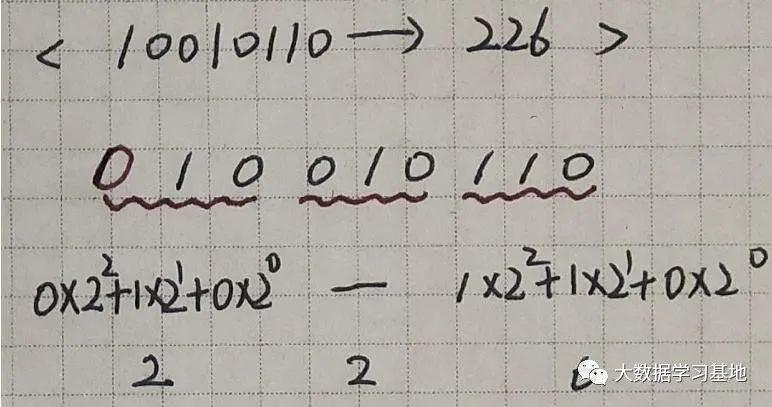 < 10010110 → 226 >
0 1 0 0 1 0 1 1 0
0×2²+1×2¹+0×2⁰ — 1×2²+1×2¹+0×2⁰
2 2
大数据学习基地